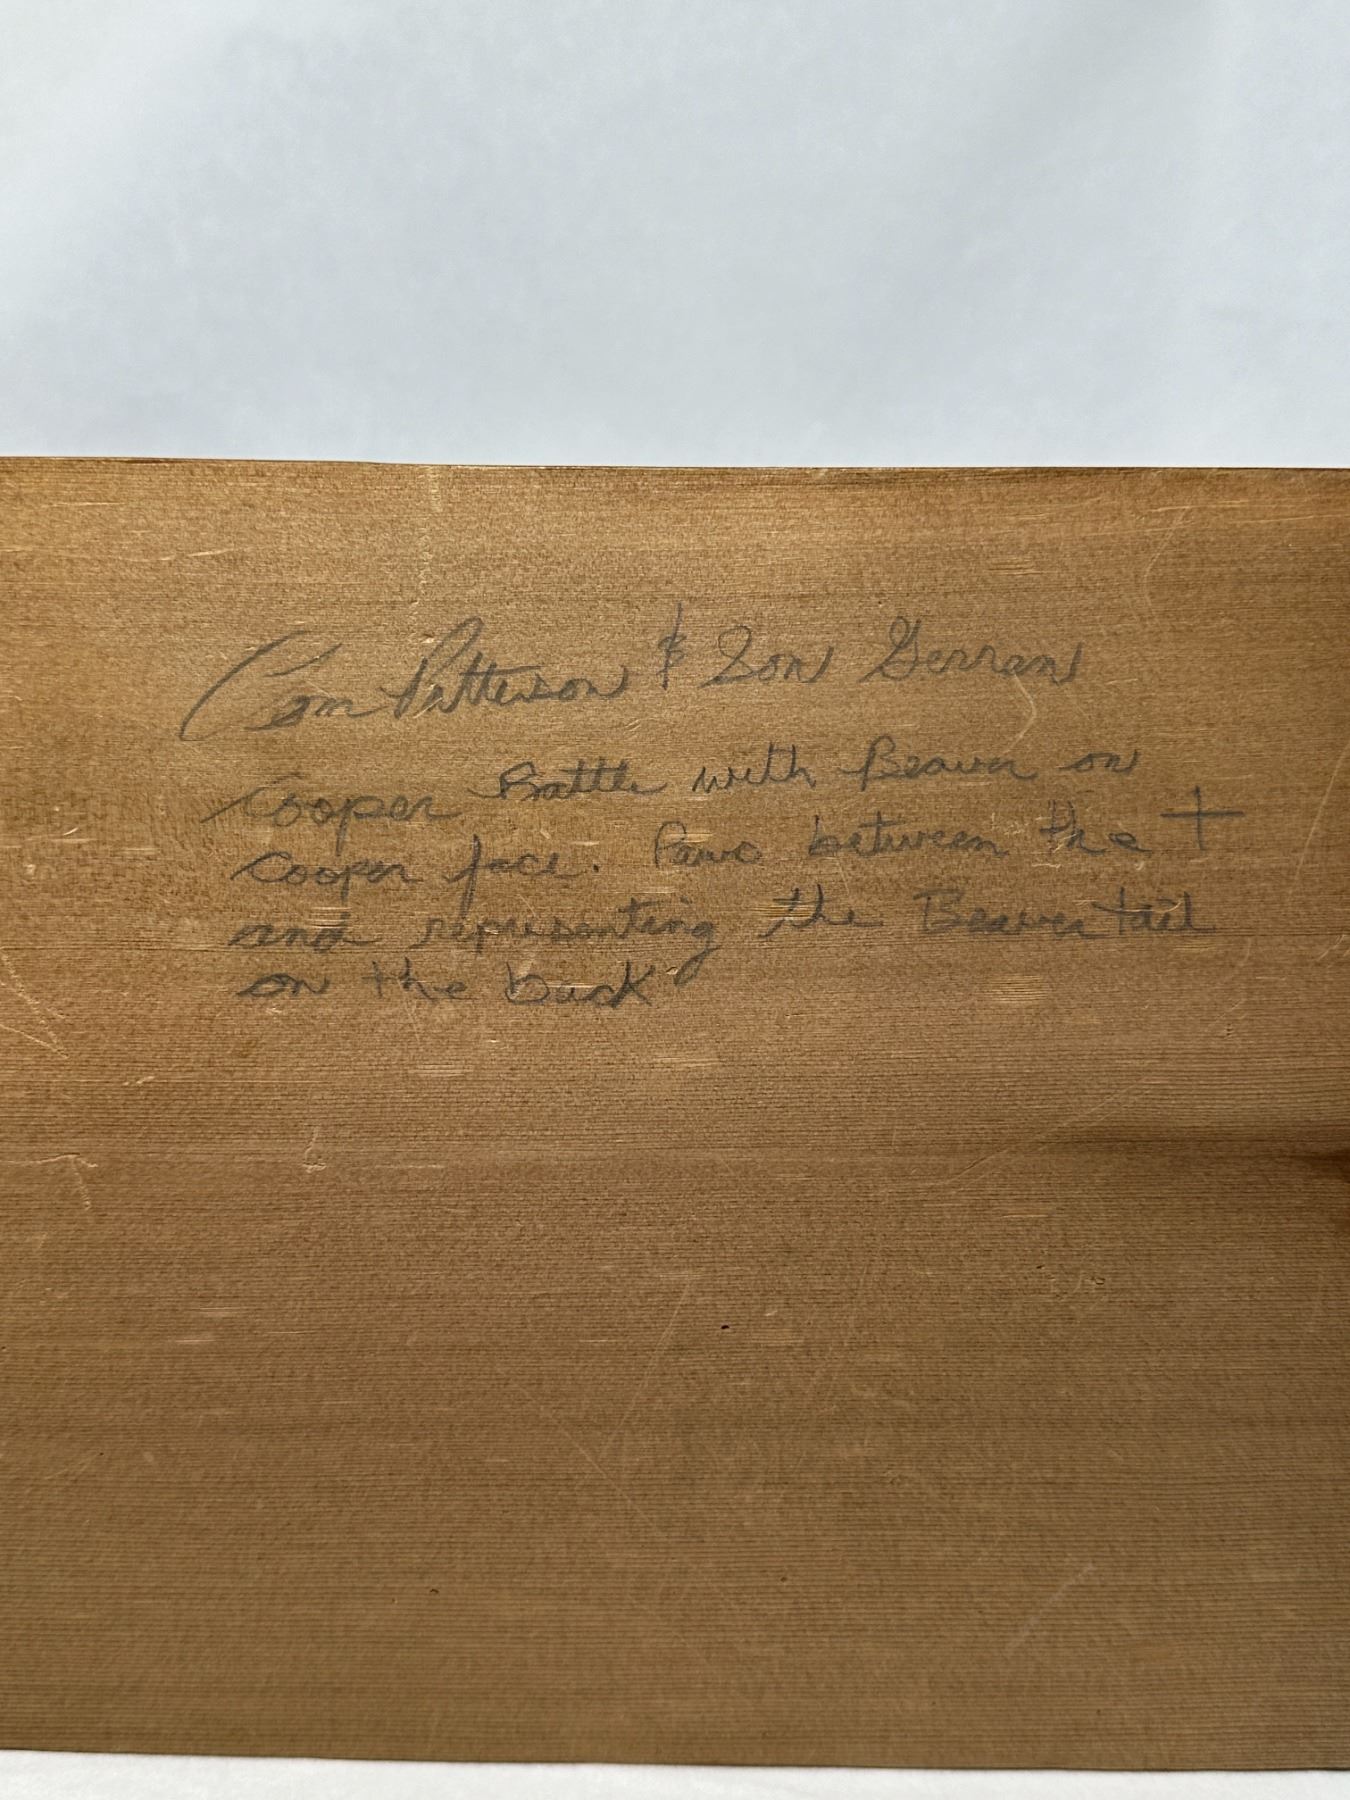 Cam Patterson & Son Gerran
Cooper Rattle with Beaver on
cooper face. Paws between the T
and representing the Beaver tail
on the back